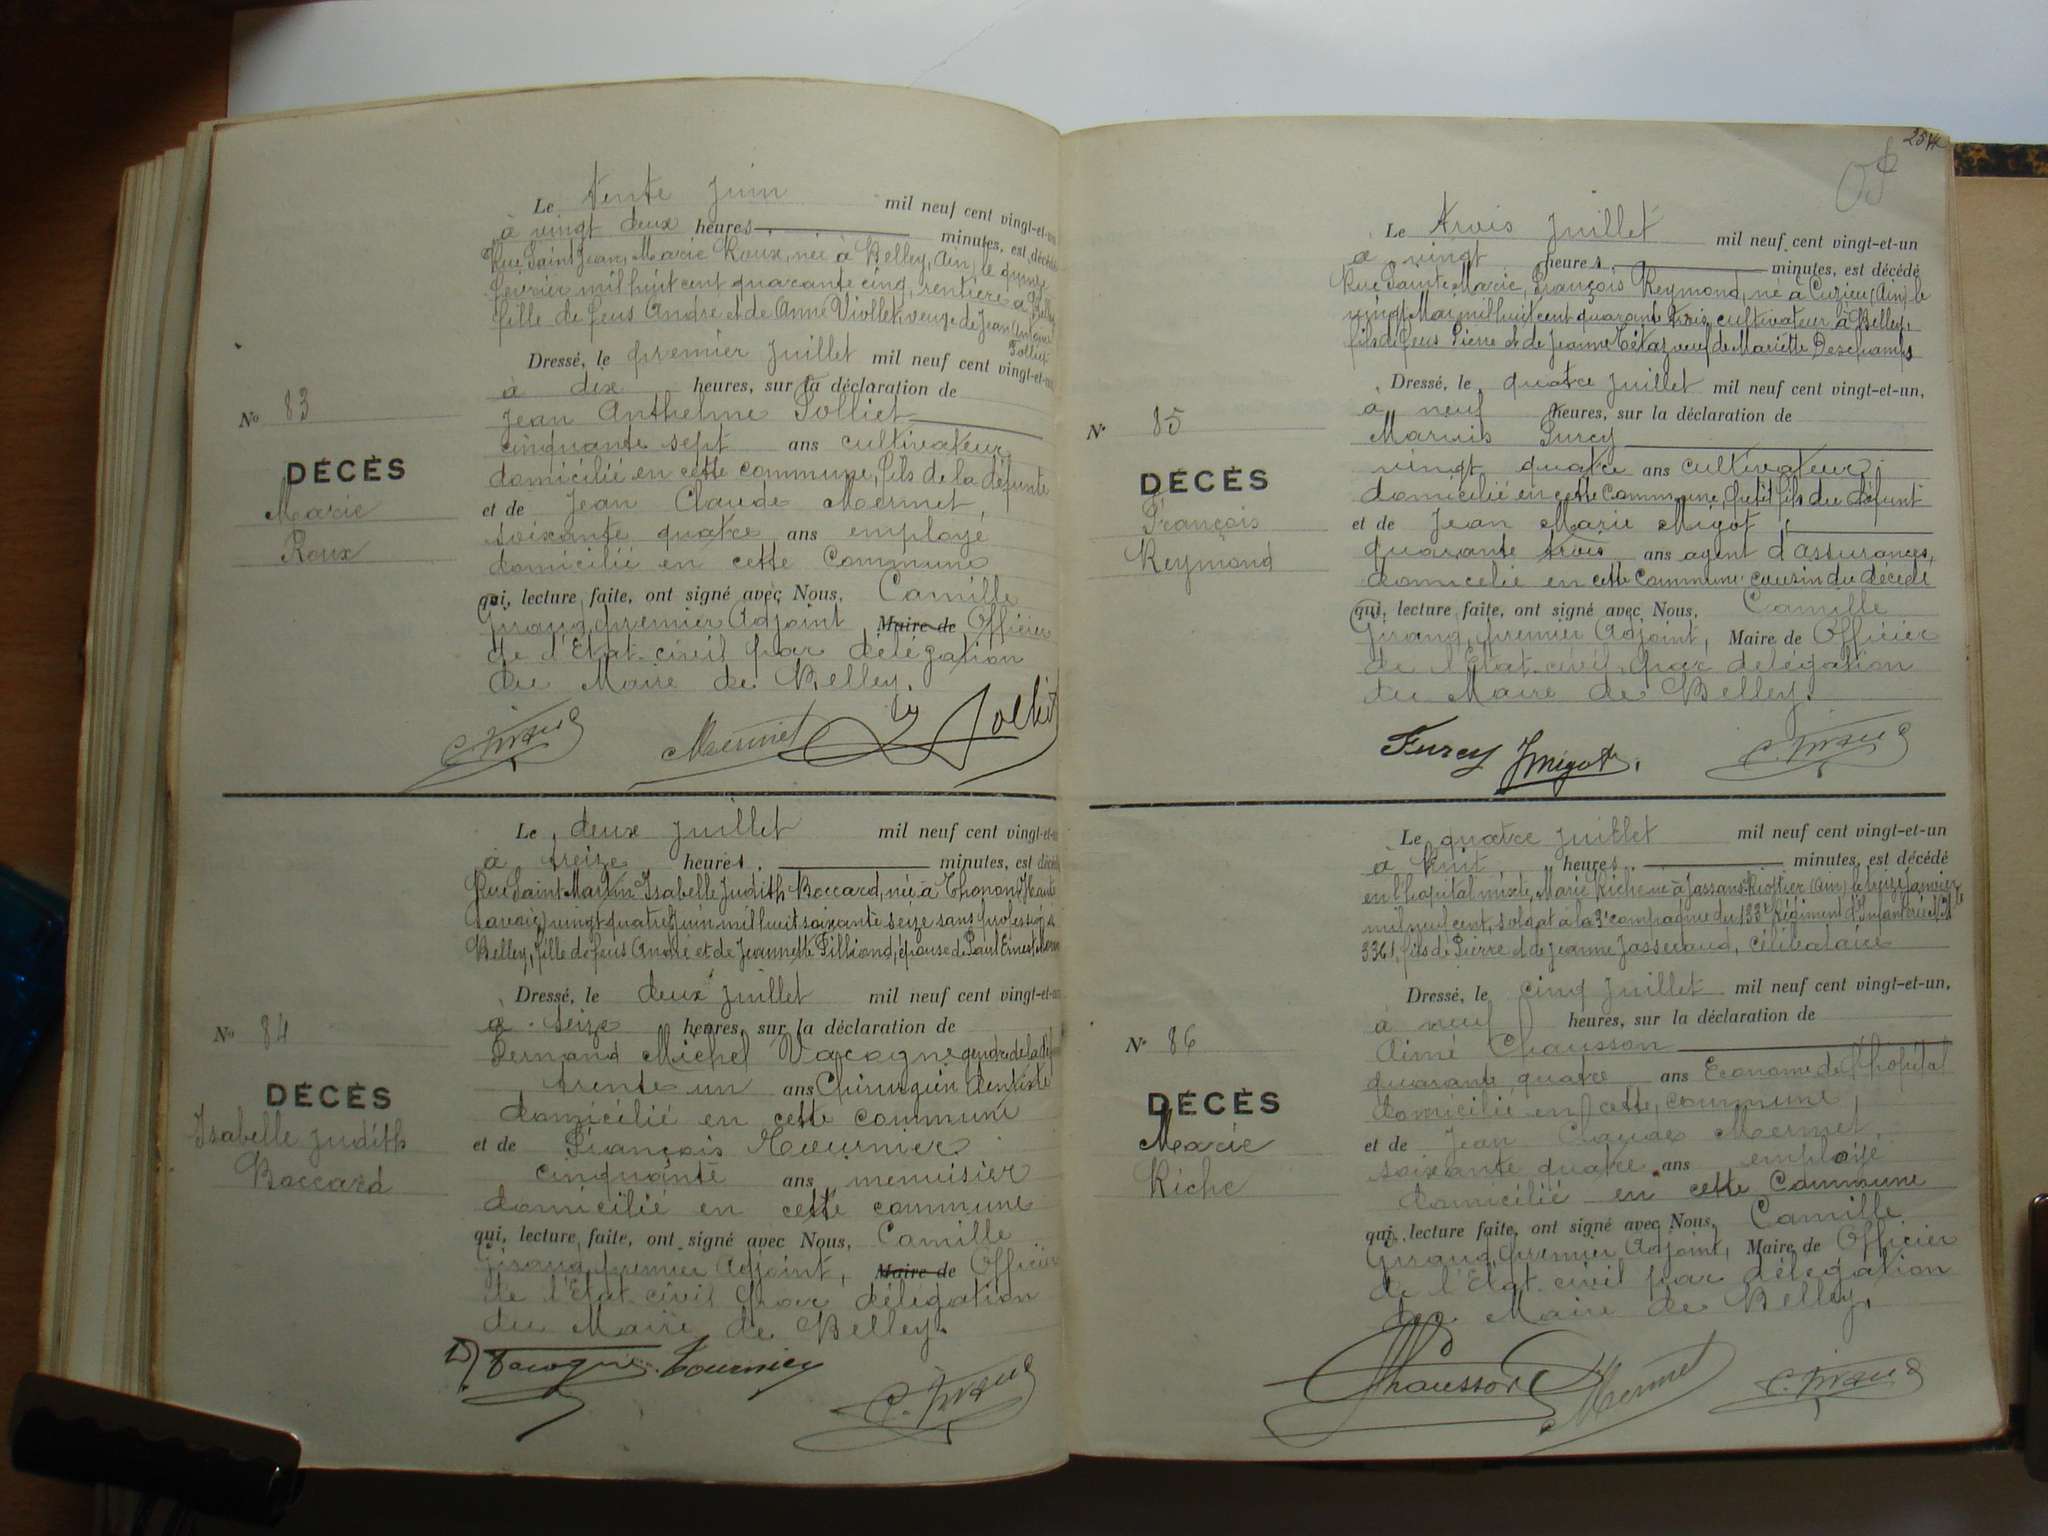 Le trente juin mil neuf cent vingt-et-un
à vingt deux heures minutes, est décédé
Rue Saint Jean, Marie Roux, née à Belley, Ain, le quinze
février mil huit cent quarante cinq, rentière à Belley
fille de feus André et de Anne Viollet, veuve de Jean Antoine
Tolliet
Dressé, le premier juillet mil neuf cent vingt-et-un
à dix heures, sur la déclaration de
Jean Anthelme Tolliet
cinquante sept ans cultivateur
domicilié en cette commune, fils de la défunte
et de Jean Claude Mermet,
soixante quatre ans employé
domicilié en cette Commune
qui, lecture faite, ont signé avec Nous, Camille
Giraud, premier Adjoint Maire de Officier
de l'Etat-civil par délégation
du Maire de Belley.
C. Giraud Mermet Tolliet
No 83
DÉCÈS
Marie
Roux
Le deux juillet mil neuf cent vingt-et-un
à treize heures, minutes, est décédé
Rue Saint Martin Isabelle Judith Boccard, née à Thonon, Haute
Savoie, vingt quatre Juin mil huit soixante seize sans profession à
Belley, fille de feus André et de Jeannette Filliond, épouse de Paul Ernest
Dressé, le deux juillet mil neuf cent vingt-et-un
à seize heures, sur la déclaration de
Fernand Michel Vacogne gendre de la
trente un ans Chirurgien dentiste
domicilié en cette commune
et de François Tournier
cinquante ans menuisier
domicilié en cette commune
qui, lecture faite, ont signé avec Nous, Camille
Giraud, premier Adjoint, Maire de Officier
de l'Etat-civil par délégation
du Maire de Belley.
Vacogne Tournier
C. Giraud
No 84
DÉCÈS
Isabelle Judith
Boccard
Le trois juillet mil neuf cent vingt-et-un
à vingt heures, minutes, est décédé
Rue Sainte Marie, François Reymond, né à Cuzieu (Ain) le
vingt Mai mil huit cent quarante trois, cultivateur à Belley,
fils de feus Pierre et de Jeanne Tétaz, veuf de Mariette Deschamps
Dressé, le quatre juillet mil neuf cent vingt-et-un,
à neuf heures, sur la déclaration de
Marius Furcy
vingt quatre ans cultivateur,
domicilié en cette commune, petit fils du défunt
et de Jean Marie Migot,
quarante trois ans agent d'assurances,
domicilié en cette commune cousin du décédé
qui, lecture faite, ont signé avec Nous, Camille
Giraud, premier Adjoint, Maire de Officier
de l'Etat-civil par délégation
du Maire de Belley.
Furcy JMigot, C. Giraud
No 85
DÉCÈS
François
Reymond
Le quatre juillet mil neuf cent vingt-et-un
à huit heures, minutes, est décédé
en l'hopital mixte, Marie Riche né à Jassans Riottier (Ain) le treize Janvier
mil neuf cent, soldat à la 3e compagnie du 133e Régiment d'Infanterie
3361, fils de Pierre et de Jeanne Jasseraud, célibataire
Dressé, le cinq juillet mil neuf cent vingt-et-un,
à neuf heures, sur la déclaration de
Aimé Chausson
quarante quatre ans Econome de l'hopital
domicilié en cette commune,
et de Jean Claude Mermet
soixante quatre ans employé
domicilié en cette Commune
qui, lecture faite, ont signé avec Nous, Camille
Giraud, premier Adjoint, Maire de Officier
de l'Etat-civil par délégation
du Maire de Belley,
Chausson Mermet C. Giraud
No 86
DÉCÈS
Marie
Riche